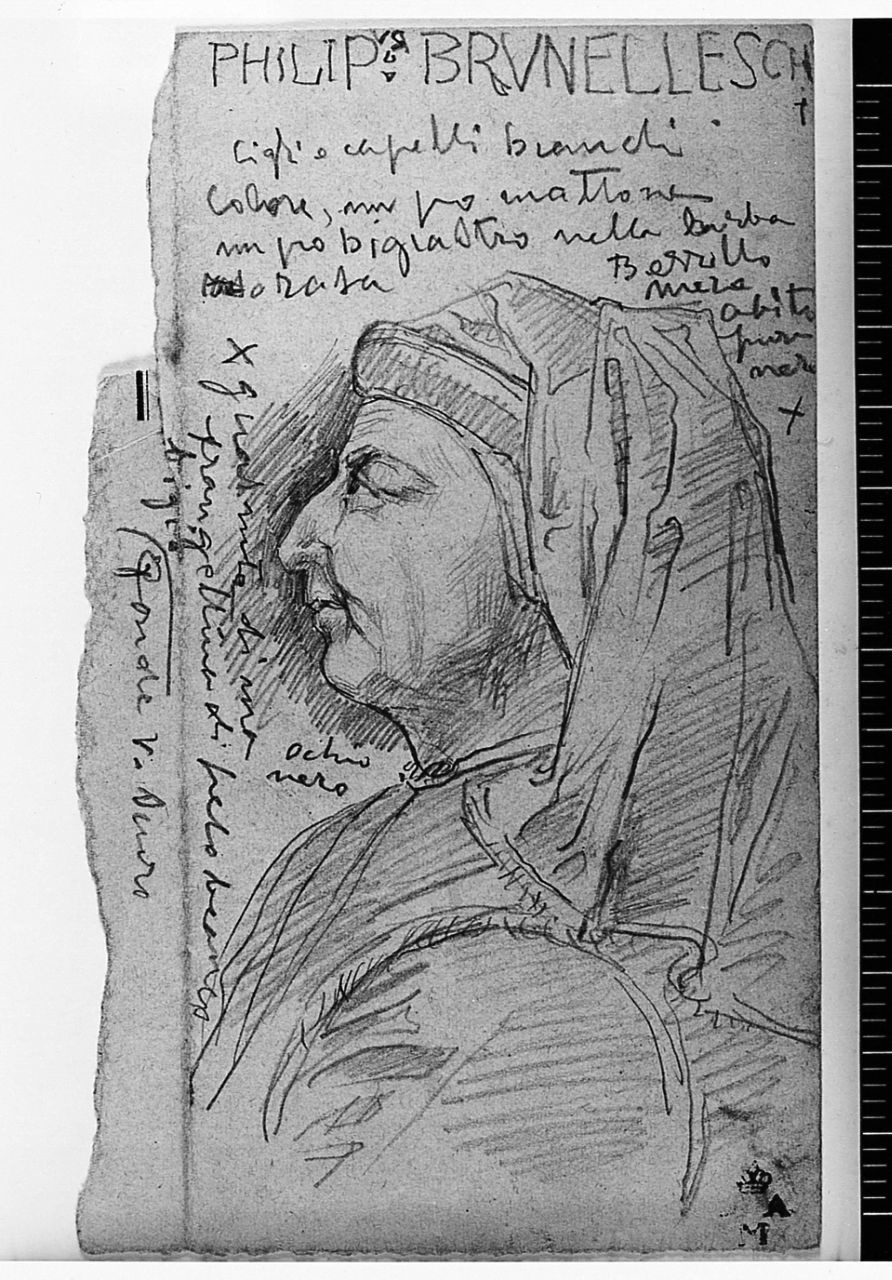 PHILIP BRVNELLESCHI
Cigli e capelli bianchi
Colore, un po mattone
un po bigiastro nella barba
rasata
Berretto
nero
abito
pure
nero
X
X guarnito di una
frangettina di pelo bianco
bigio
(fonde
ochio
nero
A
M